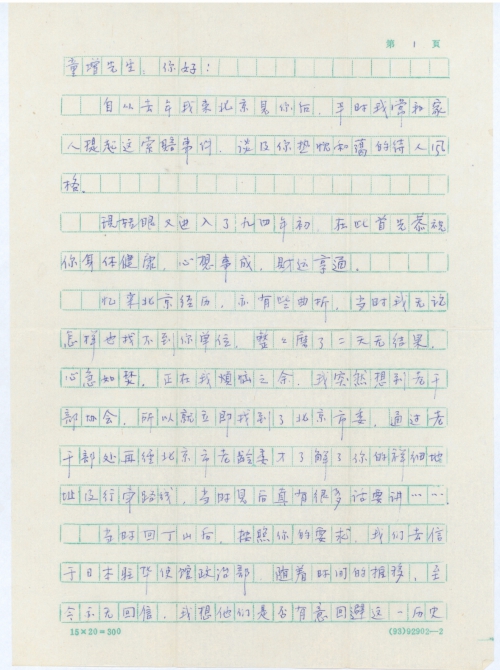 第 1 頁
童增先生，你好：
自从去年我来北京見你后，平时我常和家
人提起这索賠事件，谈及你热忱和蔼的待人风
格。
一转眼又进入了九四年初，在此首先恭祝
你身体健康，心想事成，财运亨通。
忆来北京经历，亦有些曲折，当时我无论
怎样也找不到你单位，整整磨了二天无结果，
心急如焚，正在我烦恼之余，我突然想到老干
部协会，所以就立即找到了北京市委，通过老
干部处再经北京市老龄委才了解了你的详细地
址及行车路线，当时見后真有很多话要讲……
当时回丁山后，按照你的要求，我们去信
于日本驻华使馆政治部，随着时间的推移，至
今亦无回信，我想他们是否有意回避这一历史
15×20=300
(93)92902—2